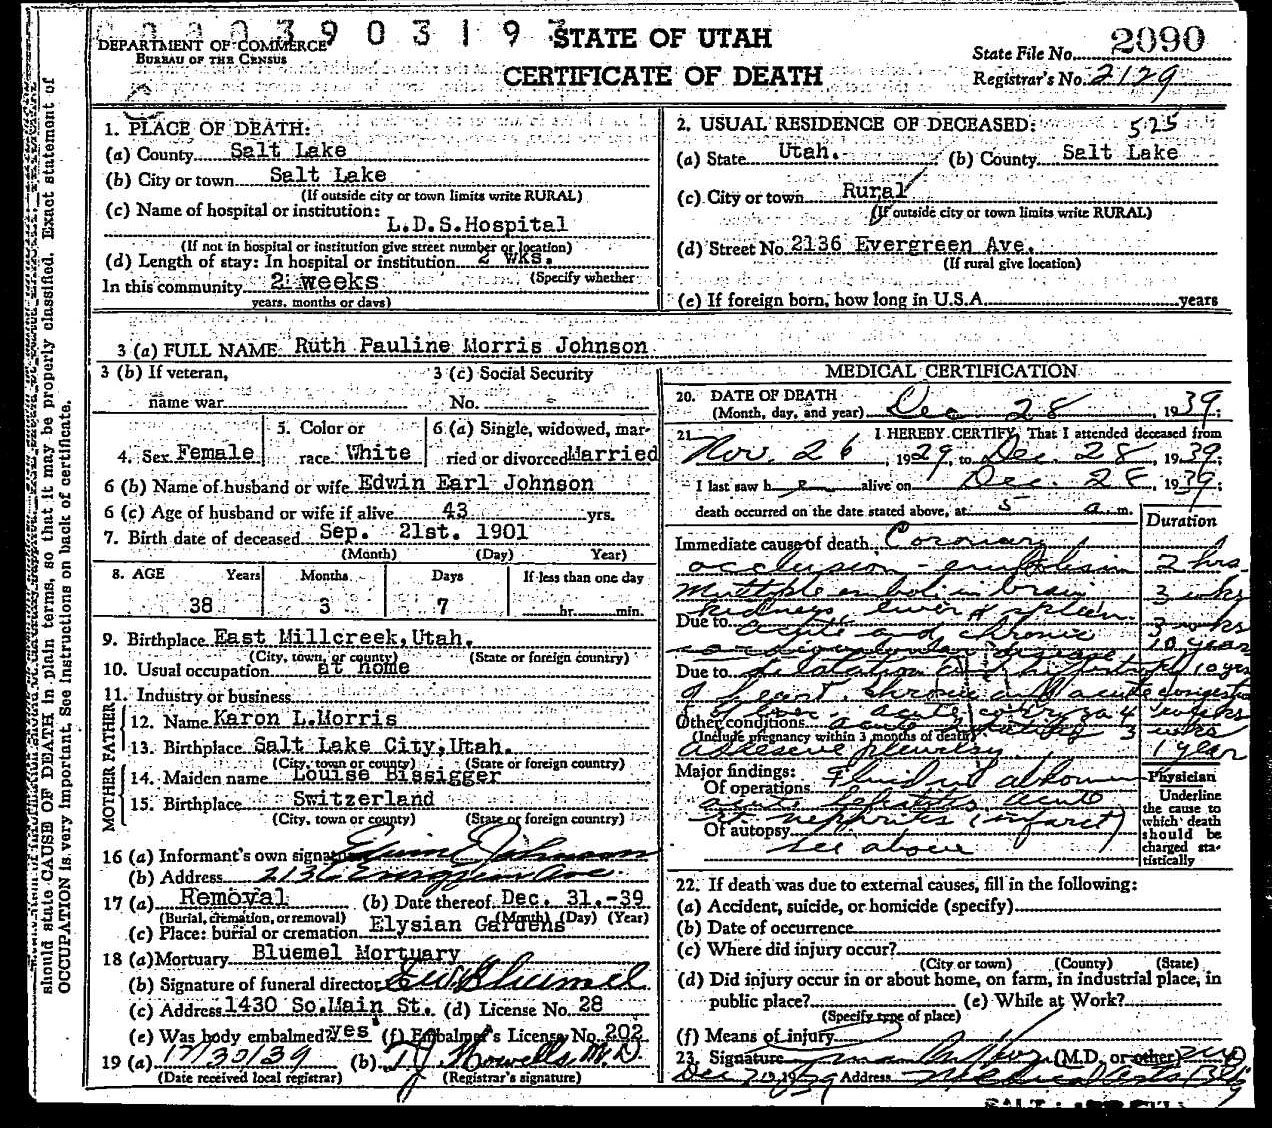 0 3 9 0 3 1 9
DEPARTMENT OF COMMERCE
BUREAU OF THE CENSUS
STATE OF UTAH
CERTIFICATE OF DEATH
State File No. 2090
Registrar's No. 2129
1. PLACE OF DEATH:
(a) County Salt Lake
(b) City or town Salt Lake
(If outside city or town limits write RURAL)
(c) Name of hospital or institution:
L.D.S.Hospital
(If not in hospital or institution give street number or location)
(d) Length of stay: In hospital or institution 2 wks.
(Specify whether
In this community 2 weeks
years, months or days)
2. USUAL RESIDENCE OF DECEASED: 525
(a) State Utah. (b) County Salt Lake
(c) City or town Rural
(If outside city or town limits write RURAL)
(d) Street No. 2136 Evergreen Ave.
(If rural give location)
(e) If foreign born, how long in U.S.A. years
3 (a) FULL NAME Ruth Pauline Morris Johnson
3 (b) If veteran,
name war
3 (c) Social Security
No. -
4. Sex Female
5. Color or
race White
6 (a) Single, widowed, mar-
ried or divorced Married
6 (b) Name of husband or wife Edwin Earl Johnson
6 (c) Age of husband or wife if alive 43 yrs.
7. Birth date of deceased Sep. 21st. 1901
(Month) (Day) Year)
8. AGE Years Months Days If less than one day
38 3 7 hr. min.
9. Birthplace East Millcreek, Utah.
(City, town, or county) (State or foreign country)
10. Usual occupation at home
11. Industry or business
FATHER
12. Name Karon L.Morris
13. Birthplace Salt Lake City, Utah.
(City, town or county) (State or foreign country)
MOTHER
14. Maiden name Louise Bissigger
15. Birthplace Switzerland
(City, town or county) (State or foreign country)
16 (a) Informant's own signature Edwin E Johnson
(b) Address 2136 Evergreen Ave.
17 (a) Removal (b) Date thereof Dec. 31.-39
(Burial, cremation, or removal) (Month) (Day) (Year)
(c) Place: burial or cremation Elysian Gardens
18 (a) Mortuary Bluemel Mortuary
(b) Signature of funeral director Bluemel
(c) Address 1430 So.Main St. (d) License No. 28
(e) Was body embalmed? yes (f) Embalmer's License No. 202
19 (a) 12/30/39 (b) T J Howells M.D.
(Date received local registrar) (Registrar's signature)
MEDICAL CERTIFICATION
20. DATE OF DEATH
(Month, day, and year) Dec 28, 1939;
21. I HEREBY CERTIFY, That I attended deceased from
Nov. 26, 1929, to Dec. 28, 1939;
I last saw her alive on Dec. 28, 1939;
death occurred on the date stated above, at 5 a. m.
Duration
Immediate cause of death Coronary
occlusion - embolism 2 hrs.
Multiple emboli in brain 3 wks
kidneys liver & spleen
Due to acute and chronic 3 weeks
disease 10 years
Due to dilatation and hypertrophy 10 yrs
of heart. chronic and acute congestion
of liver. acute coryza 4 weeks
Other conditions acute 3 wks
(Include pregnancy within 3 months of death)
adhesive pleurisy 1 year
Major findings:
Of operations Fluid in abdomen
acute acute
rt nephritis (infarct)
Of autopsy see above
Physician
Underline
the cause to
which death
should be
charged sta-
tistically
22. If death was due to external causes, fill in the following:
(a) Accident, suicide, or homicide (specify)
(b) Date of occurrence
(c) Where did injury occur?
(City or town) (County) (State)
(d) Did injury occur in or about home, on farm, in industrial place, in
public place? (e) While at Work?
(Specify type of place)
(f) Means of injury
23. Signature (M.D. or other)
Dec 29, 1939 Address Medical Arts Bldg
should state CAUSE OF DEATH in plain terms, so that it may be properly classified. Exact statement of
OCCUPATION is very important. See instructions on back of certificate.